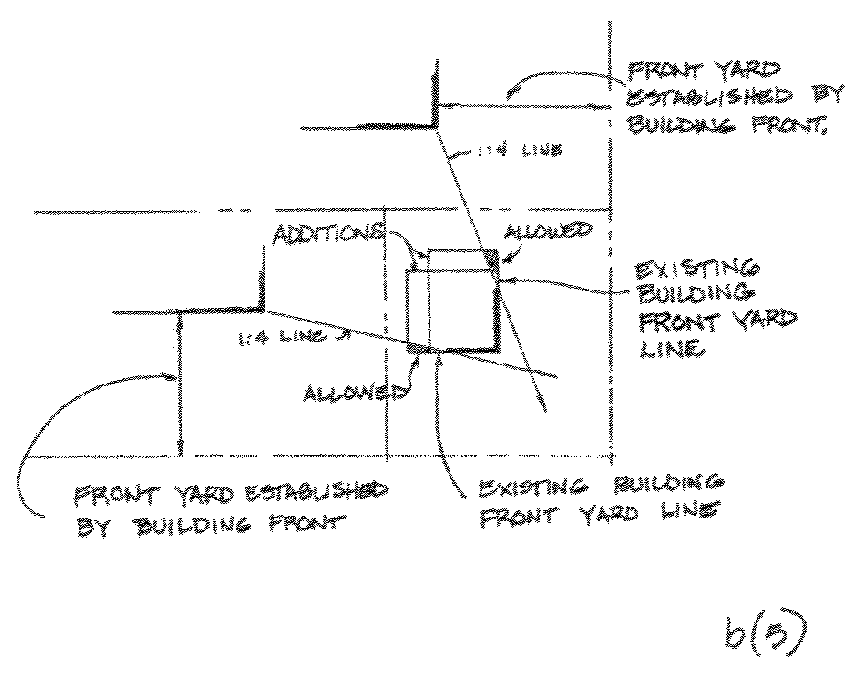 FRONT YARD
ESTABLISHED BY
BUILDING FRONT.
1:4 LINE
ADDITIONS
ALLOWED
EXISTING
BUILDING
FRONT YARD
LINE
1:4 LINE
ALLOWED
FRONT YARD ESTABLISHED
BY BUILDING FRONT
EXISTING BUILDING
FRONT YARD LINE
b(5)